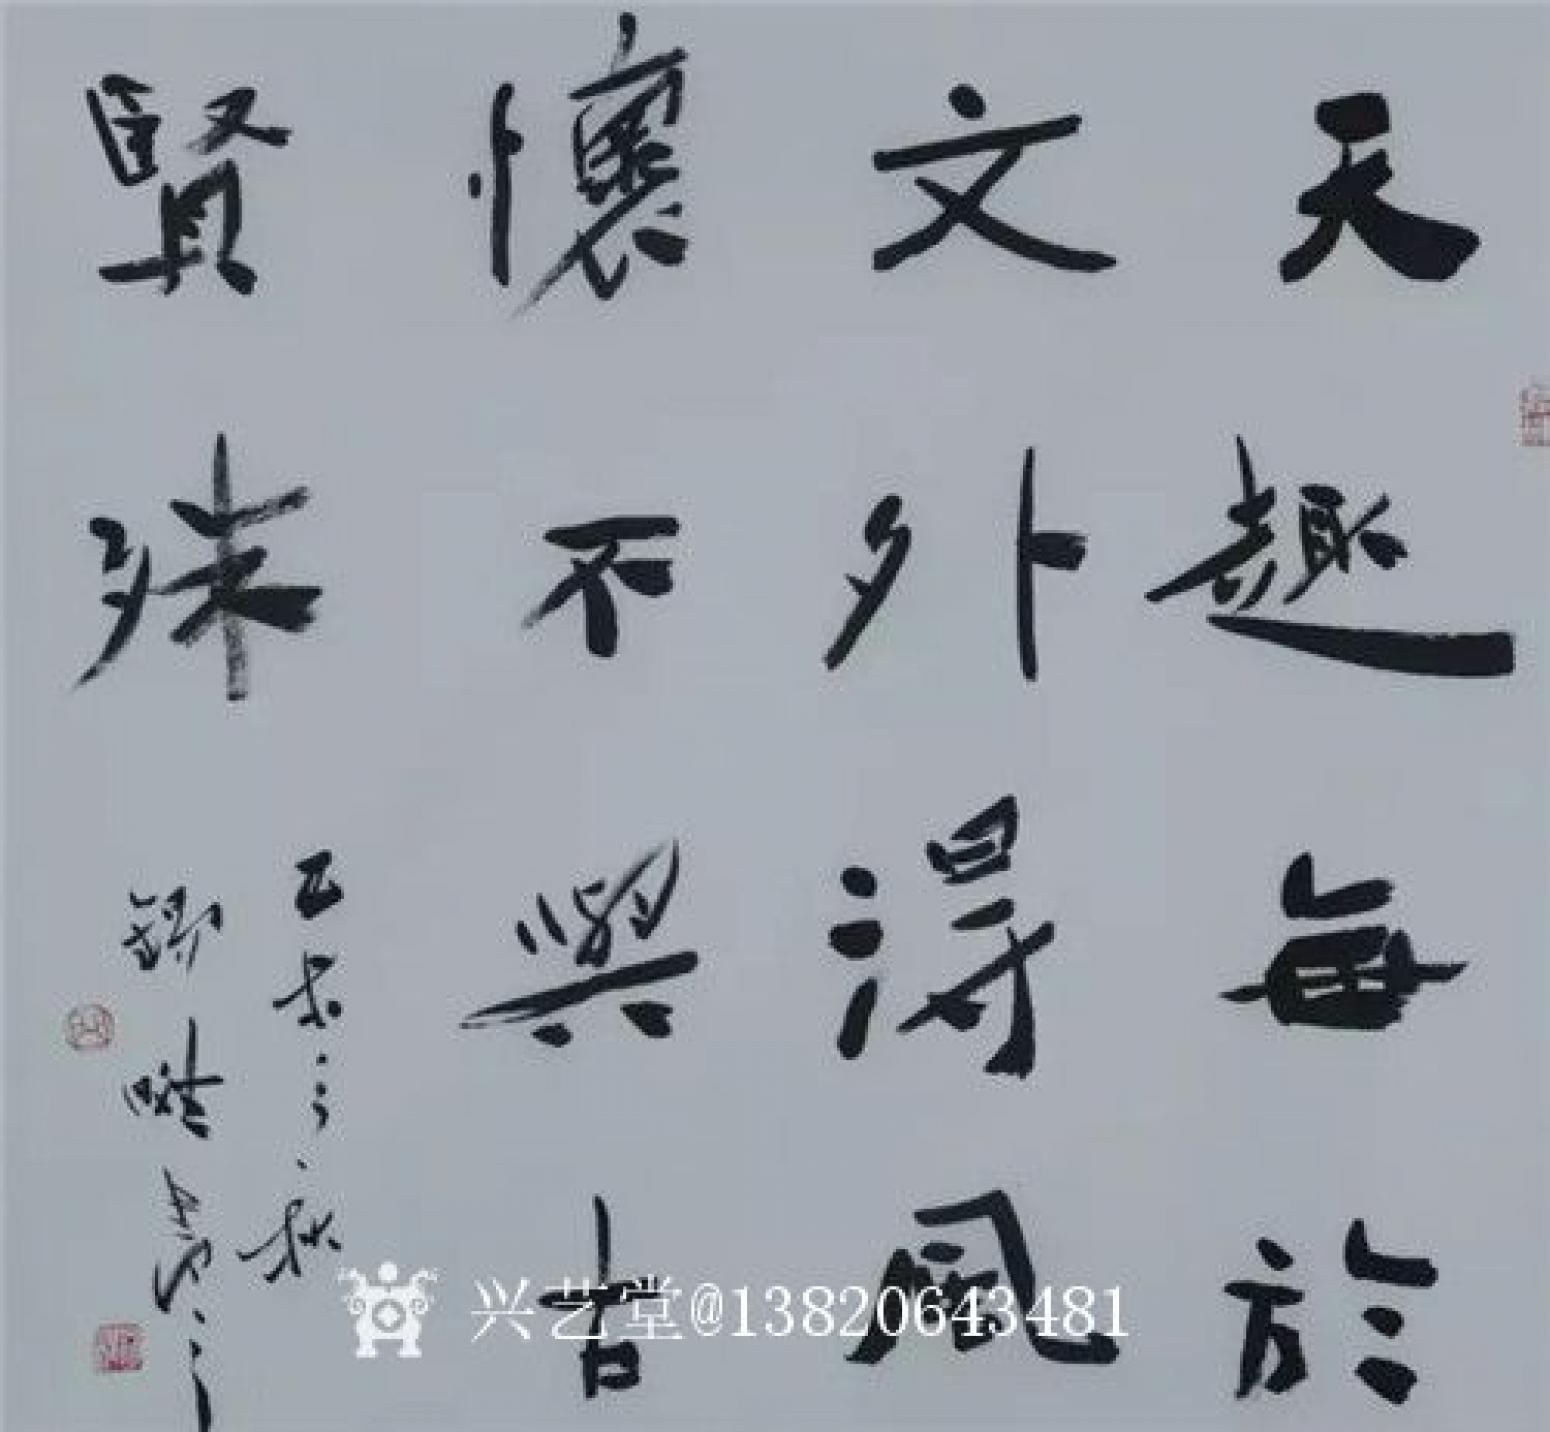 天趣每於
文外得風
懷不與古
賢殊
之秋
兴艺堂@13820643481